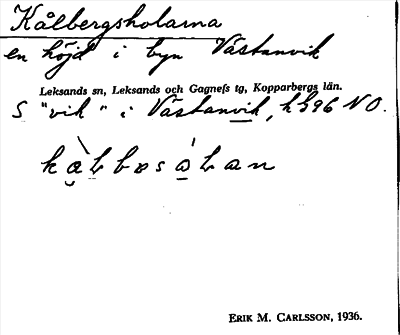 Kålbergsholarna
en höjd i byn Västanvik
Leksands sn, Leksands och Gagnefs tg, Kopparbergs län.
S "vik" i Västanvik, h 396 NO.
ERIK M. CARLSSON, 1936.